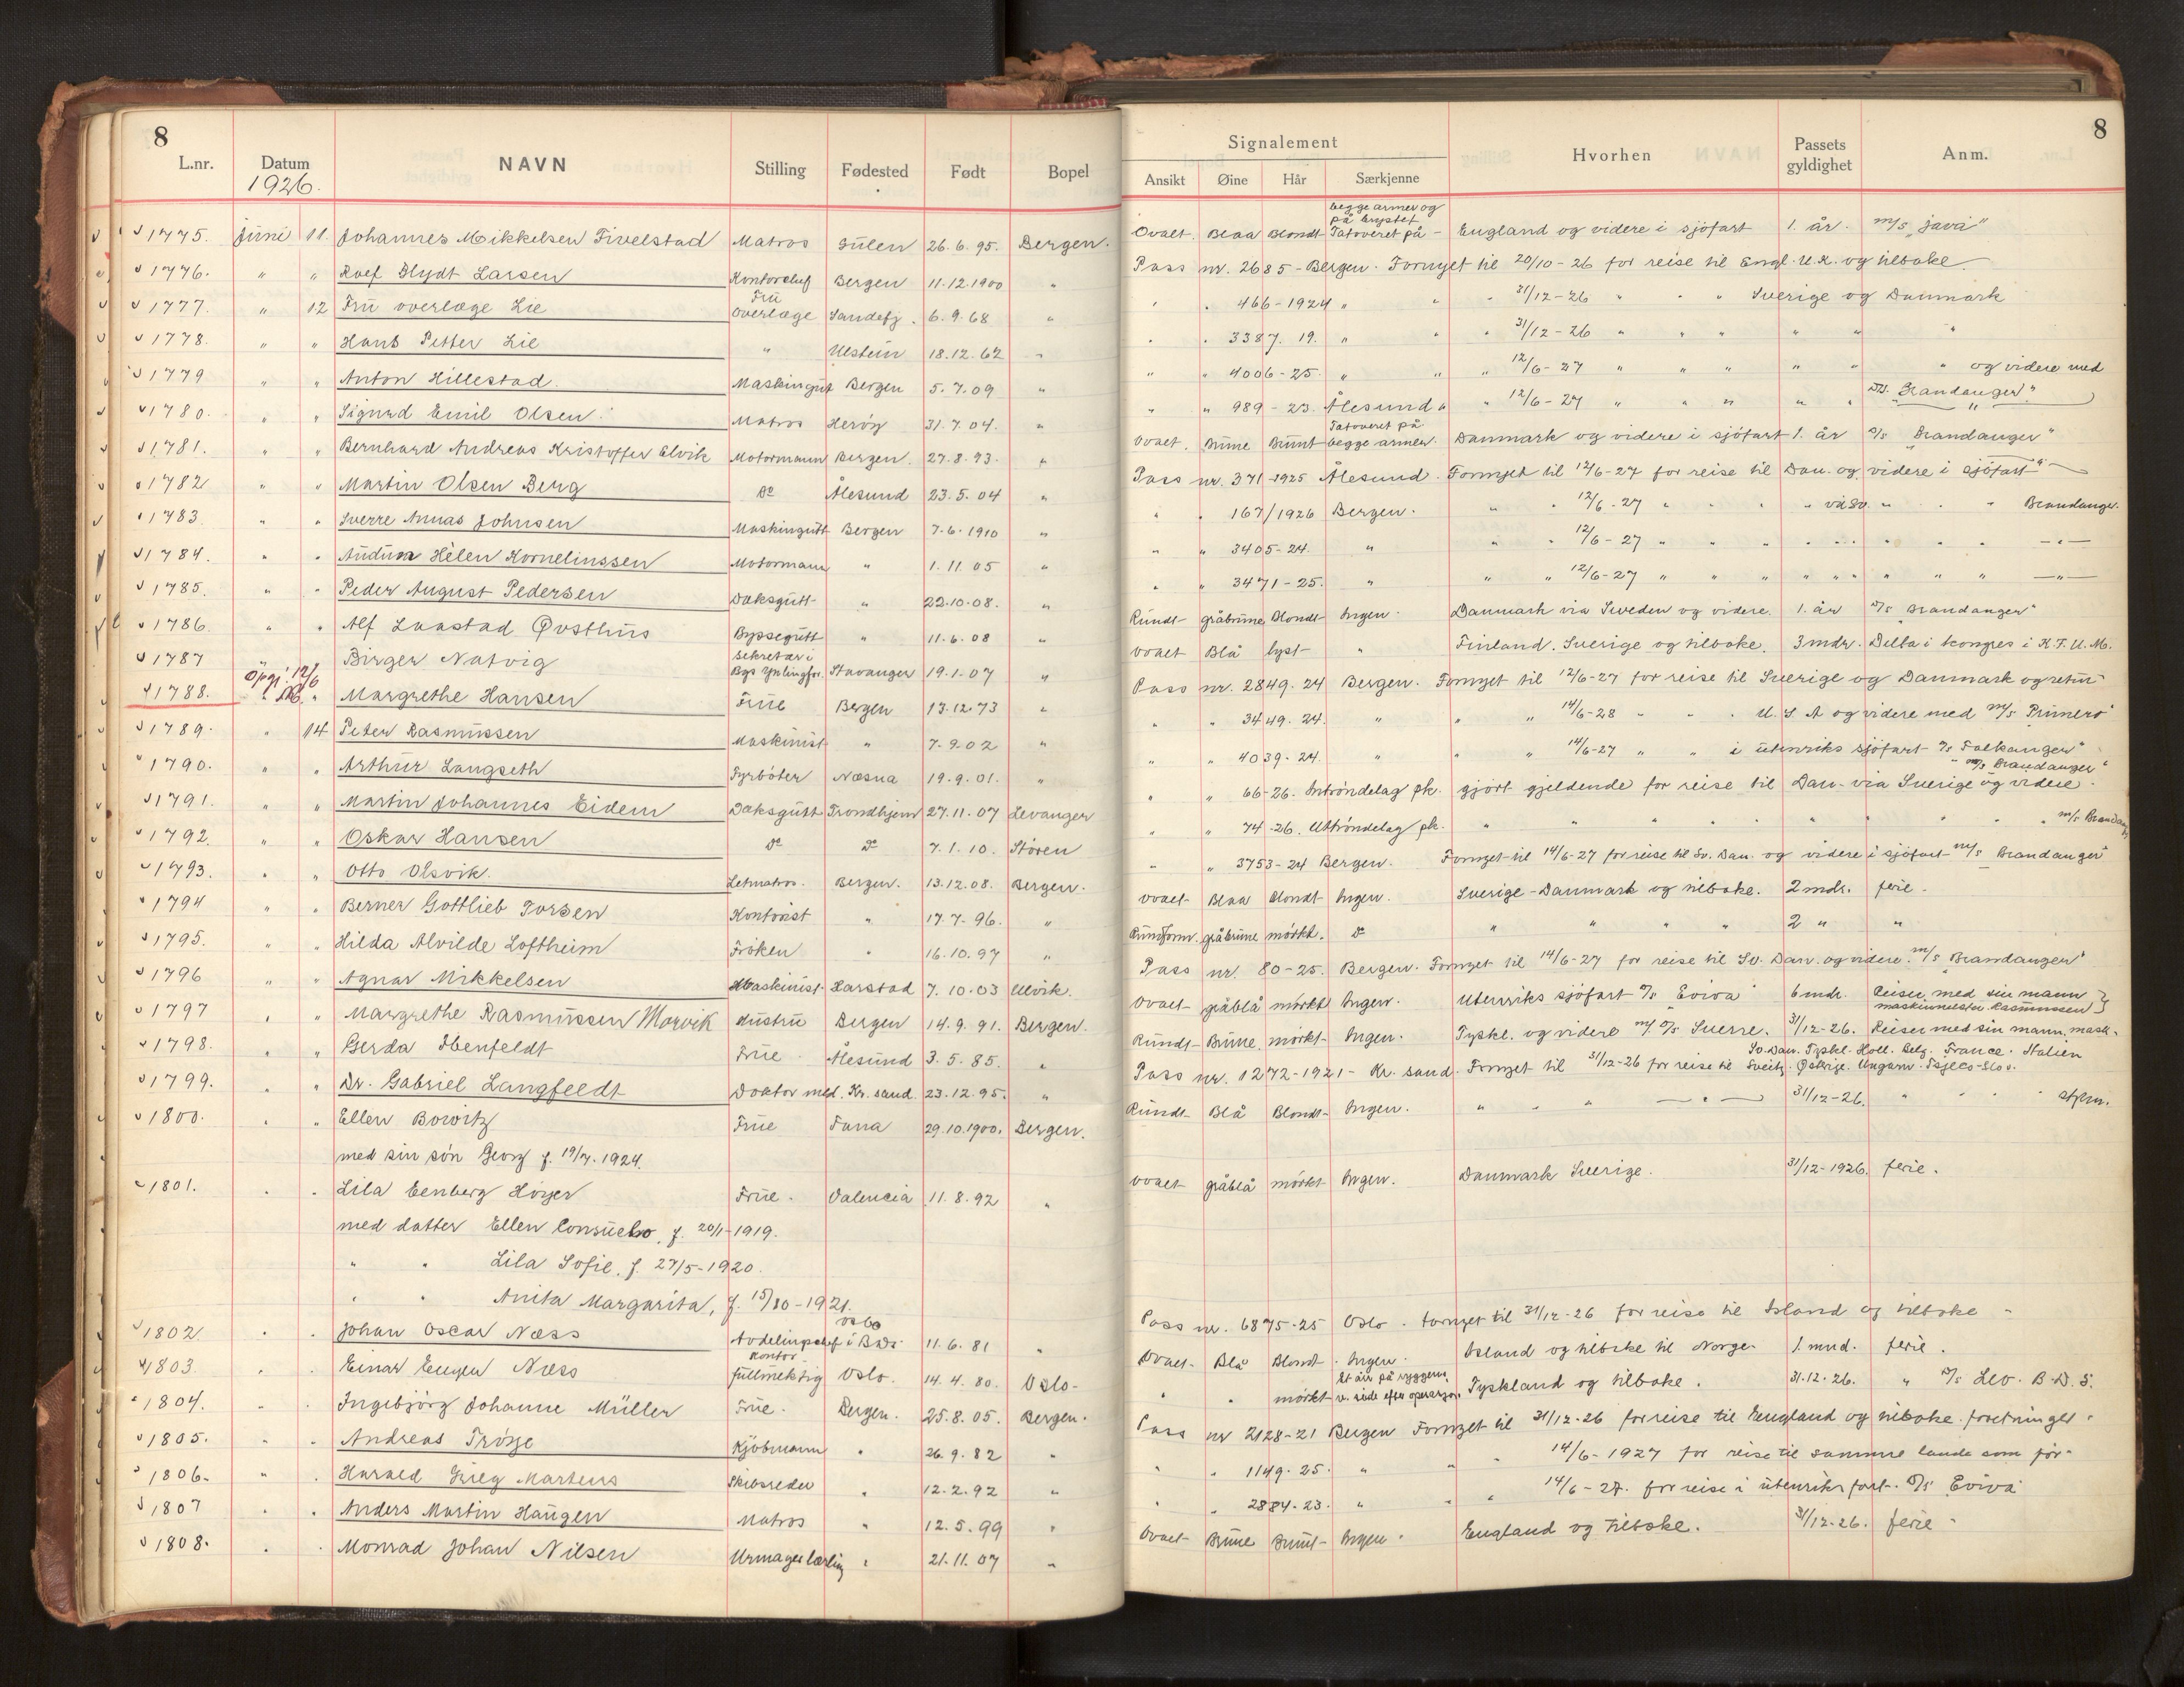 8
L.nr. Datum NAVN Stilling Fødested Født Bopel
1926.
1775. Juni 11. Johannes Mikkelsen Tivelstad Matros Gulen 26.6.95. Bergen.
1776. " " Rolf Blydt Larsen Kontorchef Bergen 11.12.1900 "
1777. " 12 Frü overlæge Lie Frü overlæge Sandefj. 6.9.68 "
1778. " " Hans Petter Lie " Ulstein 18.12.62 "
1779 " " Anton Hillestad. Maskingut Bergen 5.7.09 "
1780. " " Sigurd Emil Olsen. Matros Herøy 31.7.04. "
1781. " " Bernhard Andreas Kristoffer Elvik Motormann Bergen. 27.8.93. "
1782 " " Martin Olsen Berg Do Ålesund 23.5.04 "
1783 " " Sverre Annas Johnsen Maskingutt Bergen 7.6.1910 "
1784. " " Audun Helen Kornelinssen Motormann " 1.11.05 "
1785. " " Peder August Pedersen Daksgütt " 22.10.08. "
1786. " " Alf Laastad Øvsthüs Byssegütt " 11.6.08 "
1787 Birger Natvig Sekretær i Bgs Ynlingfor. Stavanger 19.1.07 "
Opgj. 12/6
1788. " " Margrethe Hansen Früe Bergen 13.12.73 "
1789. " 14 Peter Rasmüssen Maskinist " 7.9.02 "
1790. " " Arthür Langseth Fyrbøter Næsna 19.9.01. "
1791. " " Martin Johannes Eidem Daksgütt Trondhjem 27.11.07 Levanger
1792. " " Oskar Hansen Do Do 7.1.10. Støren
1793. " " Otto Olsvik. Letmatros. Bergen. 13.12.08. Bergen.
1794 " " Berner Gottlieb Torsen Kontorist " 17.7.96. "
1795. " " Hilda Alvilde Loftheim Frøken " 16.10.97 "
1796 " " Agnar Mikkelsen Maskinist Harstad 7.10.03 Ulvik.
1797 " " Margrethe Rasmüssen Morvik Hüstrü Bergen 14.9.91. Bergen.
1798. " " Gerda Ibenfeldt Früe. Ålesünd 3.5.85. "
1799. " " Dr. Gabriel Langfeldt Doktor med. Kr. sand. 23.12.95. "
1800. " " Ellen Bowitz Früe Fana 29.10.1900. Bergen.
med sin søn Georg f. 19/7.1924.
1801. " " Lila Eenberg Høyer Früe. Valencia 11.8.92 "
med datter Ellen Consüelo, f. 20/1-1919.
" " Lila Sofie. f. 27/5-1920.
" " Anita Margarita, f. 15/10-1921.
1802. " " Johan Oscar Næss Avdelingschef i B.D.S. kontor Oslo 11.6.81 "
1803. " " Einar Eugen Næss füllmektig Oslo. 14.4.80. Oslo-
1804. " " Ingebjørg Johanne Müller Früe. Bergen. 25.8.05. Bergen.
1805. " " Andreas Trøye Kjøbmann " 26.9.82 "
1806. " " Harald Grieg Martens Skibsreder " 12.2.92 "
1807 " " Anders Martin Haügen Matros " 12.5.99 "
1808. " " Monrad Johan Nilsen Urmagerlærling " 21.11.07 "
8
Signalement
Ansikt Øine Hår Særkjenne Hvorhen Passets gyldighet Anm.
Ovalt. Blaa Blondt Tatoveret på begge armer og på brystet England og videre i sjöfart 1. år. m/s "Java"
Pass nr. 2685 - Bergen. Fornyet til 20/10-26 for reise til Engl. U.K. og tilbake.
" " 466-1924 " " " 31/12-26 " " " Sverige og Danmark
" " 3387. 19. " " " 31/12-26 " " " " " "
" " 4006-25. " " " 12/6-27 " " " " " " og videre med
" " 989-23. Ålesund " " 12/6-27 " " " " " m/s. "Brandanger"
Ovalt. Brüne Brünt Tatoveret på begge armer. Danmark og videre i sjöfart 1. år m/s "Brandanger"
Pass nr. 371-1925 Ålesund. Fornyet til 12/6-27 for reise til Dan. og videre i sjöfart
" " 167/1926 Bergen. " " 12/6-27 " " " " via Sv. " " " Brandanger.
" " 3405-24. " " " 12/6-27 " " " " " " " " " —"—
" " 3471-25. " " " 12/6-27 " " " " " " " " " —"—
Ründt gråbrüne Blondt Ingen. Danmark via Sweden og videre. 1. år m/s "Brandanger"
Ovalt Blå lyst " Finland. Sverige og tilbake. 3 mdr. Delta i kongres i K.F.U.M.
Pass nr. 2849. 24 Bergen. Fornyet til 12/6-27 for reise til Sverige og Danmark og retür
" " 3449. 24. " " " 14/6-28 " " " U.S.A og videre med m/s "Primero"
" " 4039. 24. " " " 14/6-27 " " i ütenriks sjöfart D/s "Falkanger"
" " 66-26. Intröndelag pk. gjort gjeldende for reise til Dan. via Sverige og videre. m/s "Brandanger"
" " 74-26. Uttröndelag pk. " " " " " " " m/s Brandanger
" " 3753-24 Bergen. Fornyet til 14/6-27 for reise til Sv. Dan. og videre i sjöfart m/s "Brandanger"
Ovalt Blaa Blondt Ingen. Sverige - Danmark og tilbake. 2 mdr. ferie.
Ründform. gråbrüne mörkt. Do " " " " 2 " "
Pass nr. 80-25. Bergen. Fornyet til 14/6-27 for reise til Sv. Dan. og videre. m/s "Brandanger"
Ovalt gråblå mörkt Ingen. Utenriks sjöfart D/s "Eviva" 6 mdr. Reiser med sin mann maskinmester Rasmussen
Ründt Brüne. mörkt Ingen. Tyskl. og videre m/ D/s Sverre. 31/12-26. Reiser med sin mann mask.
Pass nr. 1272-1921- Kr. sand. Fornyet til 31/12-26 for reise til Sv. Dan. Tyskl. Holl. Belg. France. Italien Sveitz. Østrige. Ungarn. Tsjeco-Slo.
Ründt Blå Blondt Ingen. " " " —"— 31/12-26. " " " stpm.
Ovalt gråblå mörkt Ingen. Danmark Sverige. 31/12-1926. ferie.
Pass nr. 6875-25 Oslo. Fornyet til 31/12-26 for reise til Island og tilbake
Ovalt. Blå Blondt. Ingen. Island og tilbake til Norge. 1. mnd. ferie.
" " mörkt Et arr på ryggens v. side efter operasjon. Tyskland og tilbake. 31.12.26. " D/s Leo. B.D.S.
Pass nr 2128-21 Bergen Fornyet til 31/12-26 for reise til England og tilbake. forretninger.
" " 1149. 25. " " " 14/6-1927 for reise til samme lande som för.
" " 2884-23. " " " 14/6-27. for reise i ütenriks fart. D/s "Eviva"
Ovalt Brüne Brünt Ingen. England og tilbake. 31/12-26. ferie